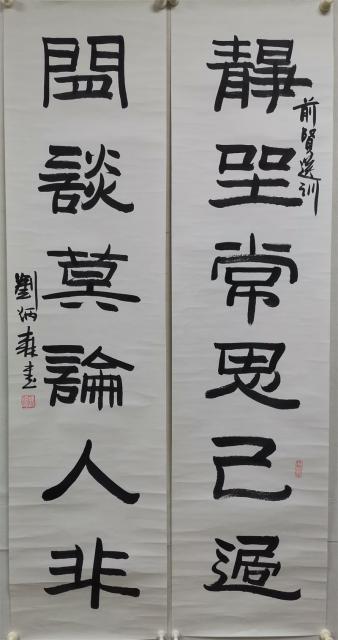 靜坐常思己過
前賢遺訓
閒談莫論人非
劉炳森書